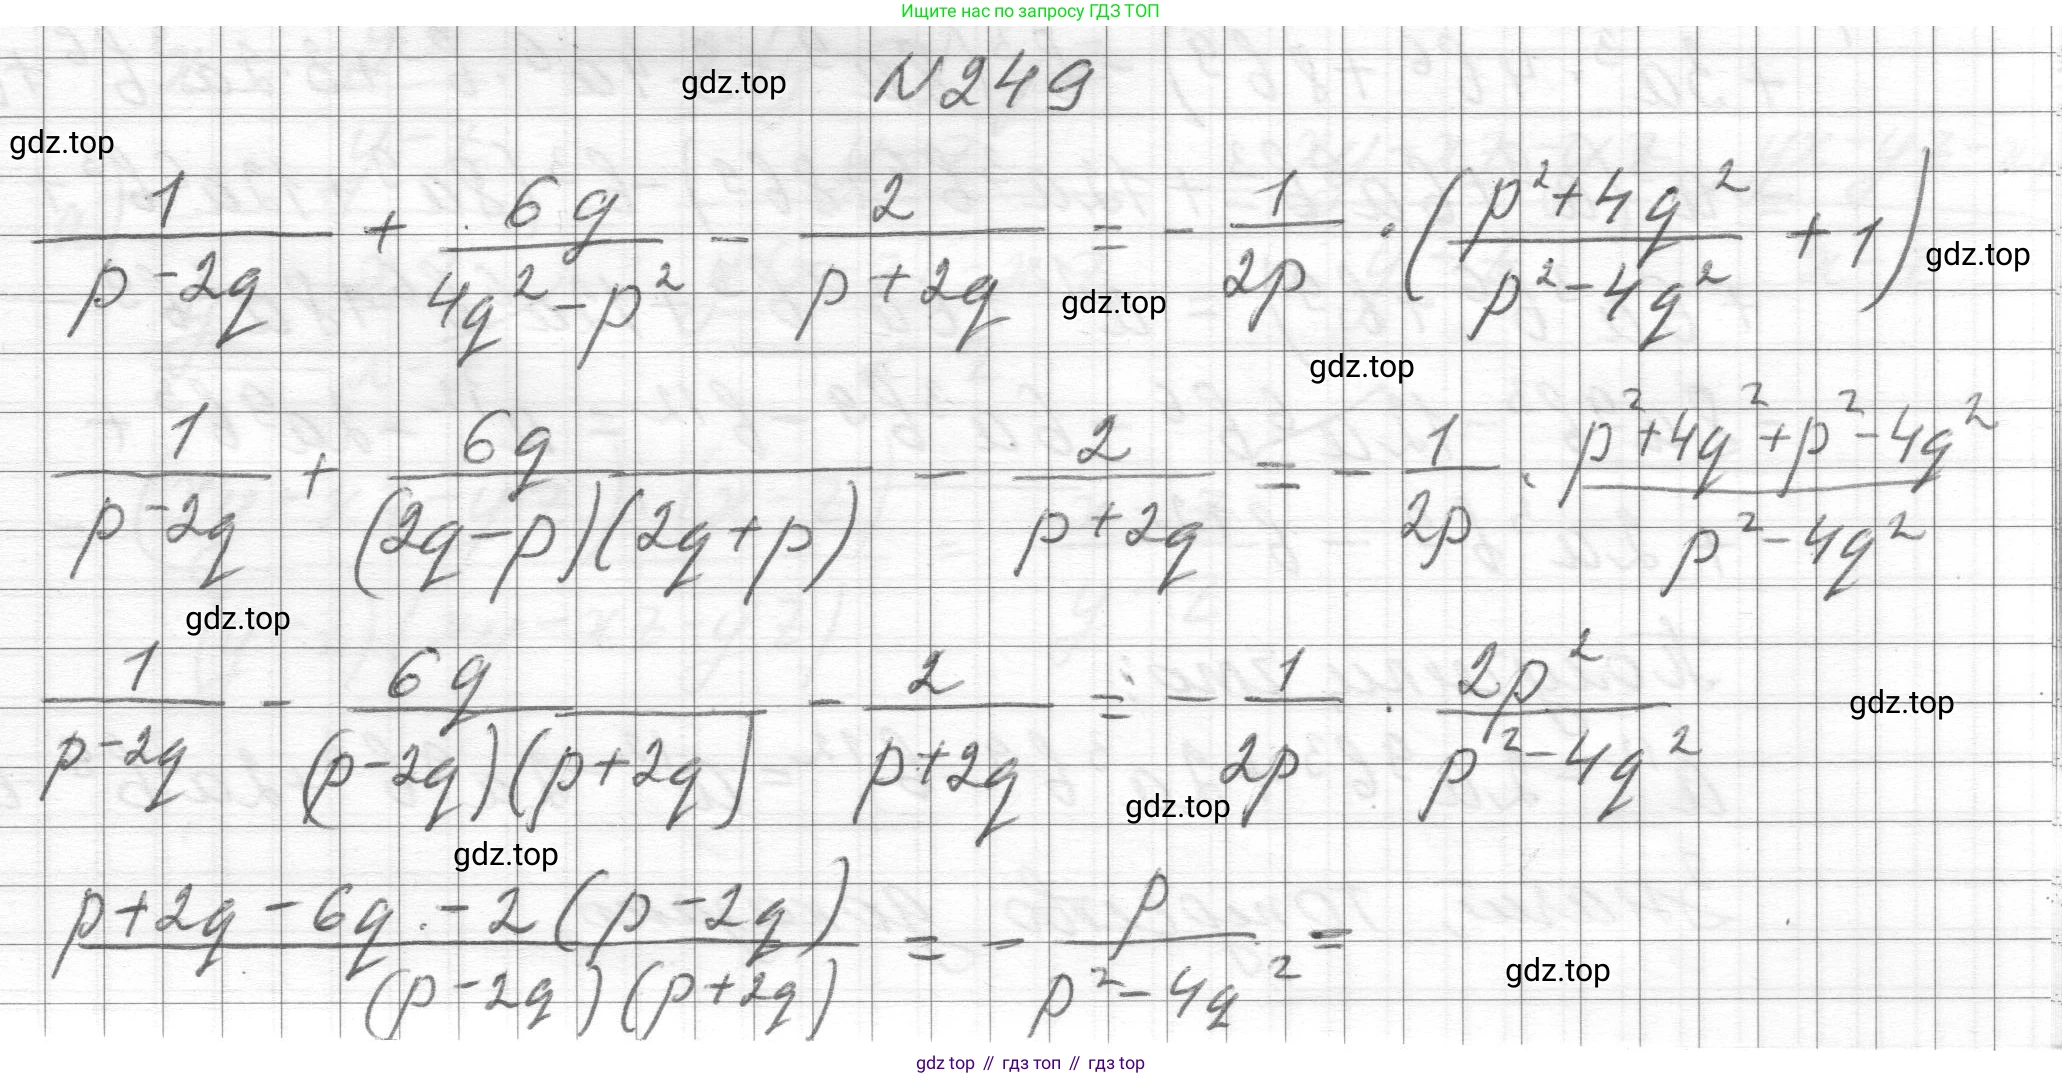 Ищите нас по запросу ГДЗ ТОП
gdz.top
N249
gdz.top
1/(p-2q) + 6q/(4q²-p²) - 2/(p+2q) = - 1/2p · ((p²+4q²)/(p²-4q²) + 1)
gdz.top
gdz.top
gdz.top
1/(p-2q) + 6q/((2q-p)(2q+p)) - 2/(p+2q) = - 1/2p · (p²+4q²+p²-4q²)/(p²-4q²)
gdz.top
1/(p-2q) - 6q/((p-2q)(p+2q)) - 2/(p+2q) = - 1/2p · 2p²/(p²-4q²)
gdz.top
gdz.top
gdz.top
(p+2q-6q-2(p-2q))/((p-2q)(p+2q)) = - p/(p²-4q²) =
gdz.top
gdz top // гдз топ // гдз top